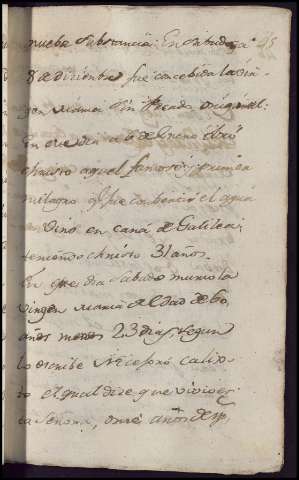 nueba Substancia. En Sabado a
8 de Diciembre fue concebida la Vir
gen Maria Sin Pecado original.
En ese dia a 6 de Enero obró
Christo aquel famoso primer
milagro q fue combertir el agua
en Vino en Cana de Galilea
teniendo Christo 31 años.
En ese dia Sabado murio la
Virgen Maria de Edad de 60
años menos 23 dias segun
lo escribe Nicesoro Calix
to el qual dize que vivio es
ta Señora, onze años desp